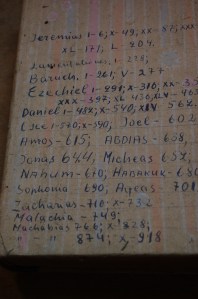 Jeremias 1-6; x-49; xx-57; xxx-
XL-171, L 204.
1-228;
Baruch, 1-261; V-277
Ezechiel 1-291; x-310; xx-33
xxx-397; XL 436; XLV-46
Daniel 1-482; x-540; XIV-562.
Osee 1-570; x-590; Joel-602
Amos-615; ABDIAS-638,
Jonas 644; Micheas 652;
Nahum-670; Habakuk-680
Sophonia 690; Aggeas 701
Zacharias-710-x-732
Malachia-749;
Machabias 766; x-828;
" - " 874; x-918